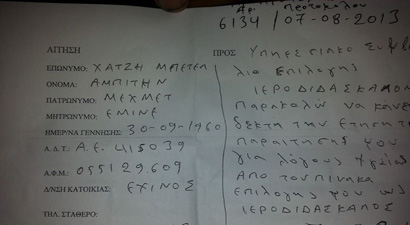 Αρ. Πρωτοκόλλου
6134/07-08-2013
ΑΙΤΗΣΗ
ΕΠΩΝΥΜΟ: ΧΑΤΖΗ ΜΠΕΤΕΛ
ΟΝΟΜΑ: ΑΜΠΙΤΗΝ
ΠΑΤΡΩΝΥΜΟ: ΜΕΧΜΕΤ
ΜΗΤΡΩΝΥΜΟ: ΕΜΙΝΕ
ΗΜΕΡ/ΝΑ ΓΕΝΝΗΣΗΣ: 30-09-1960
Α.Δ.Τ: Α.Ε. 415039
Α.Φ.Μ.: 055129609
Δ/ΝΣΗ ΚΑΤΟΙΚΙΑΣ: ΕΧΙΝΟΣ
ΤΗΛ. ΣΤΑΘΕΡΟ:
ΠΡΟΣ Υπηρεσιακο Συμβου
λιο Επιλογης
ΙΕΡΟΔΙΔΑΣΚΑΛΩΝ
Παρακαλώ να κανετε
δεκτη την
Παραιτησης μου
για λόγους Υγείας
Απο τον πινακα
Επιλογης μου ως
ΙΕΡΟΔΙΔΑΣΚΑΛΟΣ